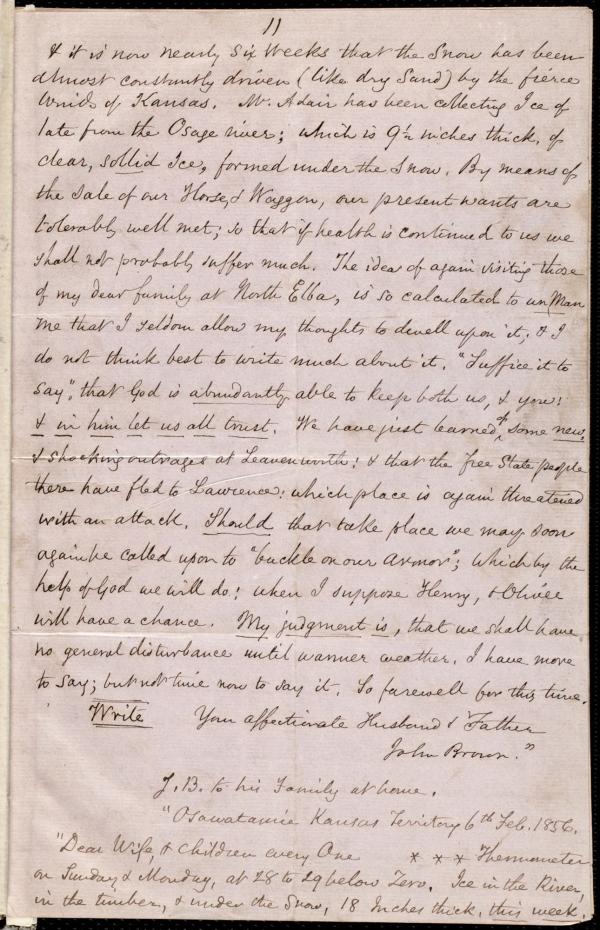 11
& it is now nearly Six Weeks that the Snow has been
almost constantly driven (like dry Sand) by the fierce
Winds of Kansas. Mr. Adair has been collecting Ice of
late from the Osage river; which is 9½ inches thick, of
clear, sollid Ice, formed under the Snow. By means of
the sale of our Horse, & Waggon, our present wants are
tolerably well met; so that if health is continued to us we
shall not probably suffer much. The idea of again visiting those
of my dear family at North Elba, is so calculated to unMan
me that I seldom allow my thoughts to dwell upon it, & I
do not think best to write much about it. "Suffice it to
say", that God is abundantly able to keep both us, & you:
& in him let us all trust. We have just learned of some new,
& shocking outrages at Leavenworth: & that the Free State people
there have fled to Lawrence: which place is again threatened
with an attack. Should that take place we may soon
again be called upon to "buckle on our Armor"; which by the
help of God we will do: when I suppose Henry, & Oliver
will have a chance. My judgment is, that we shall have
no general disturbance until warmer weather. I have more
to say; but not time now to say it. So farewell for this time.
Write Your affectionate Husband & Father
John Brown."
J. B. to his Family at home.
"Osawatamie Kansas Territory 6th Feb. 1856.
"Dear Wife, & Children every One * * * Thermometer
on Sunday & Monday, at 28 to 29 below Zero. Ice in the River,
in the timber, & under the Snow, 18 Inches thick, this week.